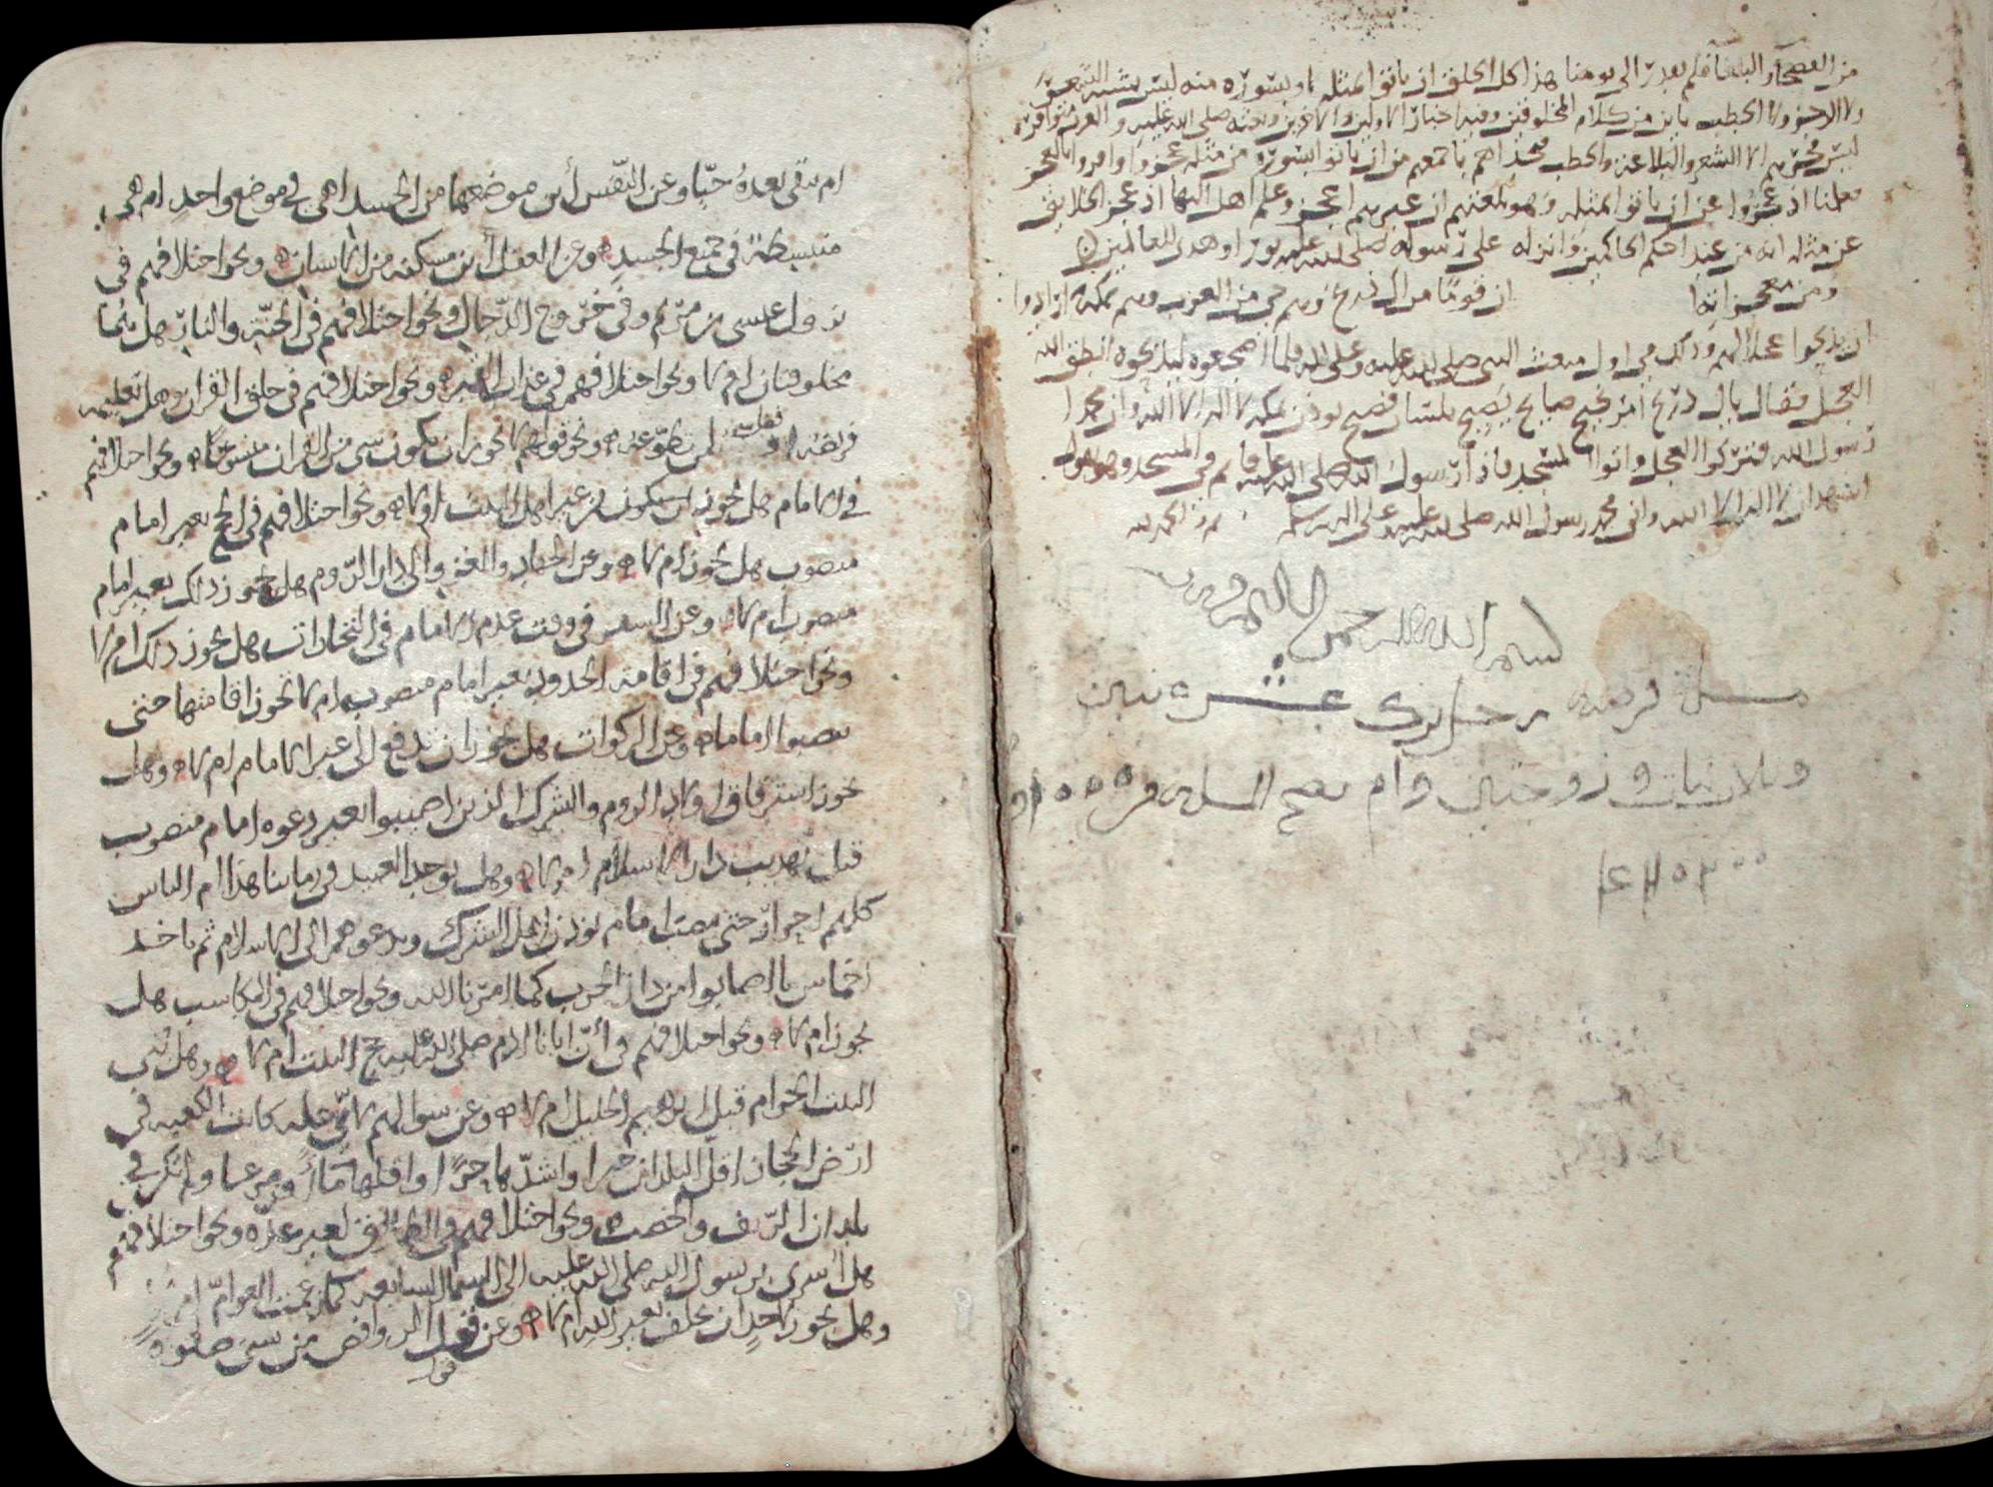 من الفصحا والبلغا فلم يقدر الى يومنا هذا كل الخلق ان ياتوا بمثله او بسورة منه ليس يشبه الشعر
ولا الرجز ولا الخطب باين من كلام المخلوقين وفيه اخبار الاولين والاخرين وبعثه صلى الله عليه والعرب متوافرة
ليس فخرهم الا الشعر والبلاغة والخطب فتحداهم باجمعهم من ان ياتوا بسورة من مثله عجزوا واقروا بالعجز
فعلمنا اذ عجزوا عن ان ياتوا بمثله وهو بلغتهم ان غيرهم اعجز وعلم اهل النها اذ عجز الخلايق
عن مثله انه من عند احكم الحاكمين وانزله على رسوله صلى الله عليه نورا وهدى للعالمين
ومن معجزاته ان قوما من ال ذريح وهم حي من العرب وهم بمكة ارادوا
ان يذبحوا عجلا لهم وذلك في اول مبعث النبي صلى الله عليه وعلى اله فلما اضجعوه ليذبحوه انطق الله
العجل فقال يال ذريح امر نجيح صايح يصيح بلسان فصيح يوذن بمكة لا اله الا الله وان محمدا
رسول الله فتركوا العجل واتوا المسجد فاذا رسول الله صلى الله عليه قايم في المسجد وهو يقول
اشهد ان لا اله الا الله واني محمد رسول الله صلى الله عليه وعلى اله وسلم تم والحمد لله
بسم الله الرحمن الرحيم
مسلة فرضه رجل ترك عشره بنين
وثلاث بنات و زوجتين وام تصح المسلة من
ام تبقى بعده حيا وعن النفس أين موضعها من الجسد اهي في موضع واحد ام هي
منبسطة في جميع الجسد وعن العقل أين مسكنه من الانسان ونحو اختلافهم في
نزول عيسى بن مريم وفي خروج الدجال ونحو اختلافهم في الجنة والنار هل هما
مخلوقتان ام لا ونحو اختلافهم في عذاب القبر ونحو اختلافهم في خلق القران وهل تعليمه
فريضة او نفل لمن تطوع به ونحو قولهم لا يجوز ان يكون شي من القران منسوخا ونحو اختلافهم
في الامام هل يجوز ان يكون من غير اهل البيت ام لا ونحو اختلافهم في الحج بغير امام
منصوب هل يجوز ام لا وعن الجهاد والغزو الى دار الروم هل يجوز ذلك بغير امام
منصوب ام لا وعن السفر في وقت عدم الامام في التجارات هل يجوز ذلك ام لا
ونحو اختلافهم في اقامة الحدود بغير امام منصوب ام لا يجوز اقامتها حتى
ينصبوا اماما وعن الزكوات هل يجوز ان تدفع الى غير الامام ام لا وهل
يجوز استرقاق اولاد الروم والشرك الذين اصيبوا بغير دعوه امام منصوب
قبل تهذيب دار الاسلام ام لا وهل يوجد العبيد في زماننا هذا ام الناس
كلهم احرار حتى ينصب امام يوذن اهل الشرك ويدعوهم الى الاسلام ثم ياخذ
اخماس ما اصابوا من دار الحرب كما امرنا الله ونحو اختلافهم في المكاسب هل
يجوز ام لا ونحو اختلافهم في أن ابانا ادم صلى الله عليه حج البيت ام لا وهل بني
البيت الحرام قبل ابرهيم الخليل ام لا وعن سوالهم لاي علة كانت الكعبه في
ارض الحجاز اقل البلدان خيرا واشدها حرا واقلها ماء ومرعا ولم تكن في
بلدان الريف والخصب ونحو اختلافهم في الطلاق لغير عدة ونحو اختلافهم
هل أسري برسول الله صلى الله عليه الى السما السابعه كما زعمت العوام ام لا
وهل يجوز لاحد ان يحلف بغير الله ام لا وعن قول الروافض من نسي صلوة